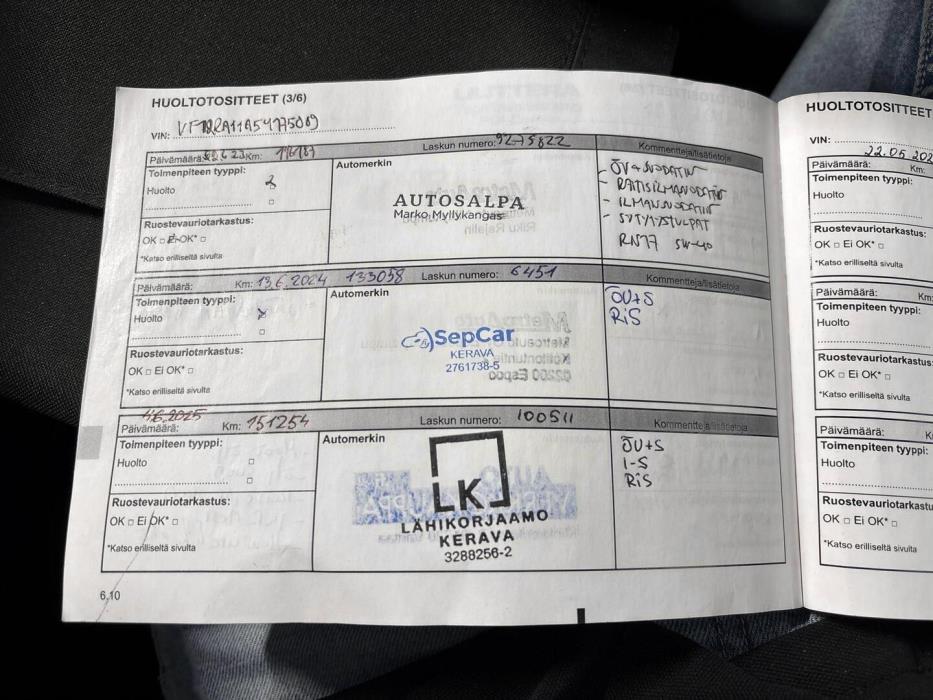 HUOLTOTOSITTEET (3/6)
VIN:
Päivämäärä: Km: Laskun numero: 9275822 Kommentteja/lisätietoja
Toimenpiteen tyyppi:
Huolto
Ruostevauriotarkastus:
OK Ei OK*
*Katso erilliseltä sivulta
Automerkin
AUTOSALPA
Marko Myllykangas
- ÖV+SUODATIN
- RAITISILMANSUODATIN
- ILMANSUODATIN
- SYTYTYSTULPAT
RN17 5W-40
Päivämäärä: Km: 13.6.2024 133058 Laskun numero: 6451 Kommentteja/lisätietoja
Toimenpiteen tyyppi:
Huolto x
Ruostevauriotarkastus:
OK Ei OK*
*Katso erilliseltä sivulta
Automerkin
SepCar
KERAVA
2761738-5
ÖV+S
RiS
4.6.2025
Päivämäärä: Km: 151254 Laskun numero: 100511 Kommentteja/lisätietoja
Toimenpiteen tyyppi:
Huolto
Ruostevauriotarkastus:
OK Ei OK*
*Katso erilliseltä sivulta
Automerkin
LK
LÄHIKORJAAMO
KERAVA
3288256-2
ÖV+S
I-S
RiS
6.10
HUOLTOTOSITTEET
VIN:
22.05.202
Päivämäärä: Km:
Toimenpiteen tyyppi:
Huolto
Ruostevauriotarkastus:
OK Ei OK*
*Katso erilliseltä sivulta
Päivämäärä: Km:
Toimenpiteen tyyppi:
Huolto
Ruostevauriotarkastus:
OK Ei OK*
*Katso erilliseltä sivulta
Päivämäärä:
Toimenpiteen tyyppi:
Huolto
Ruostevauriotarkastu
OK Ei OK*
*Katso erilliseltä